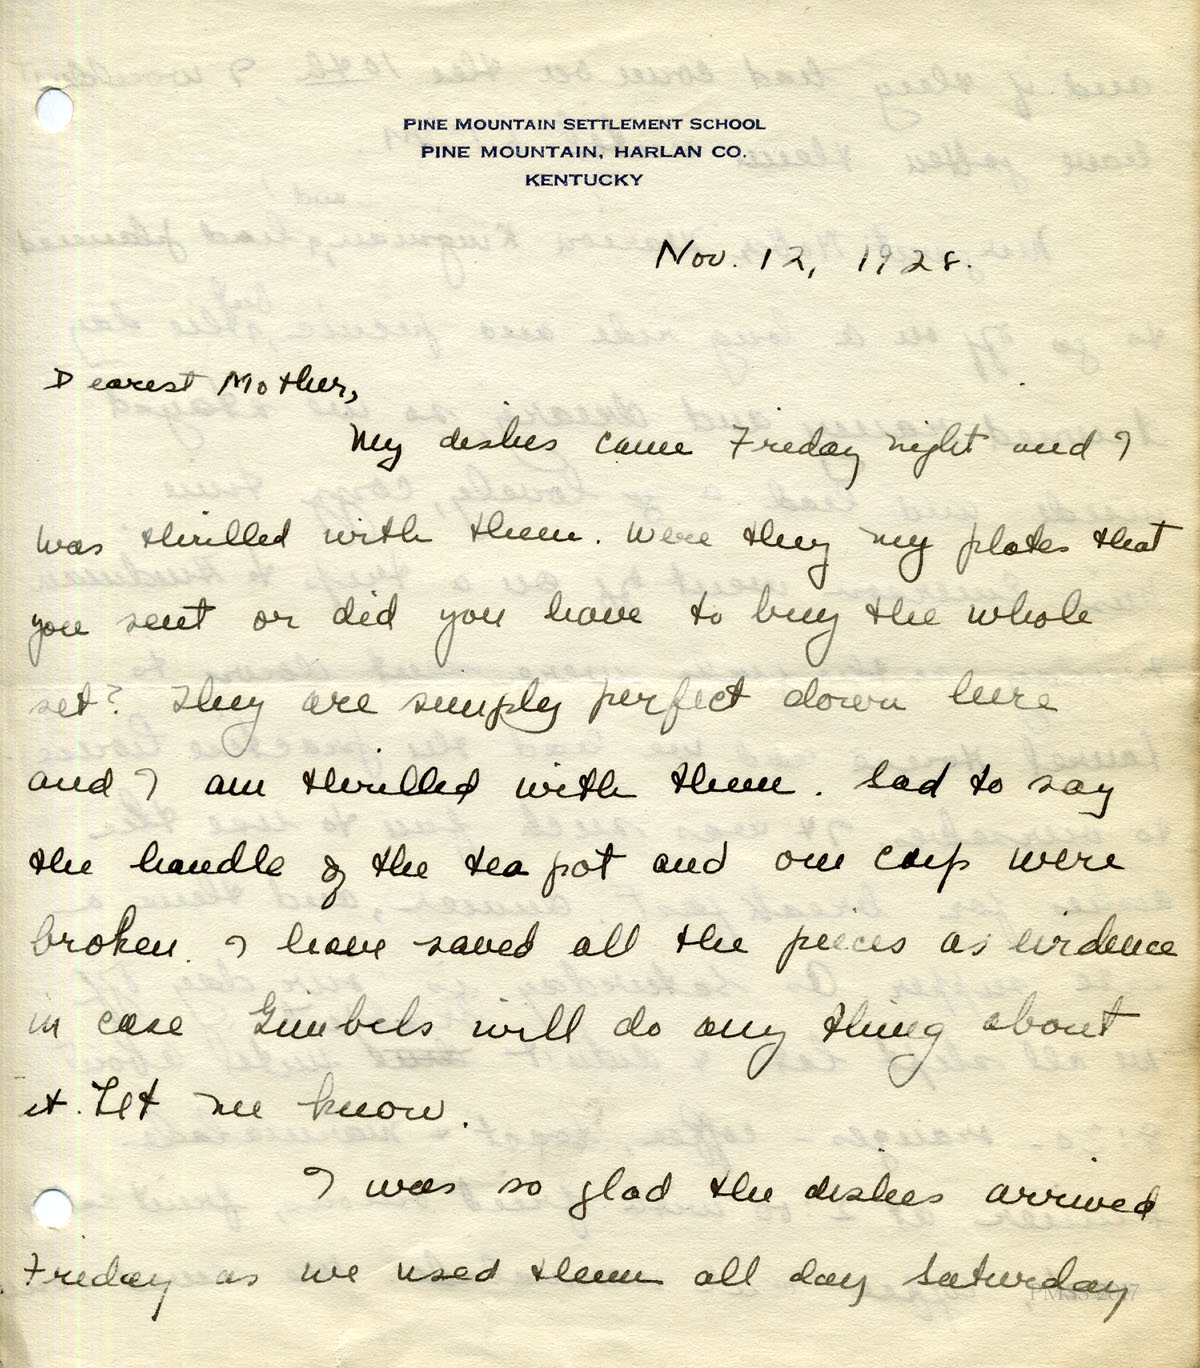 PINE MOUNTAIN SETTLEMENT SCHOOL
PINE MOUNTAIN, HARLAN CO.
KENTUCKY
Nov. 12, 1928.
Dearest Mother,
My dishes came Friday night and I
was thrilled with them. Were they my plates that
you sent or did you have to buy the whole
set? They are simply perfect down here
and I am thrilled with them. Sad to say
the handle of the tea pot and one cup were
broken. I have saved all the pieces as evidence
in case Gimbels will do any thing about
it. Let me know.
I was so glad the dishes arrived
Friday as we used them all day Saturday